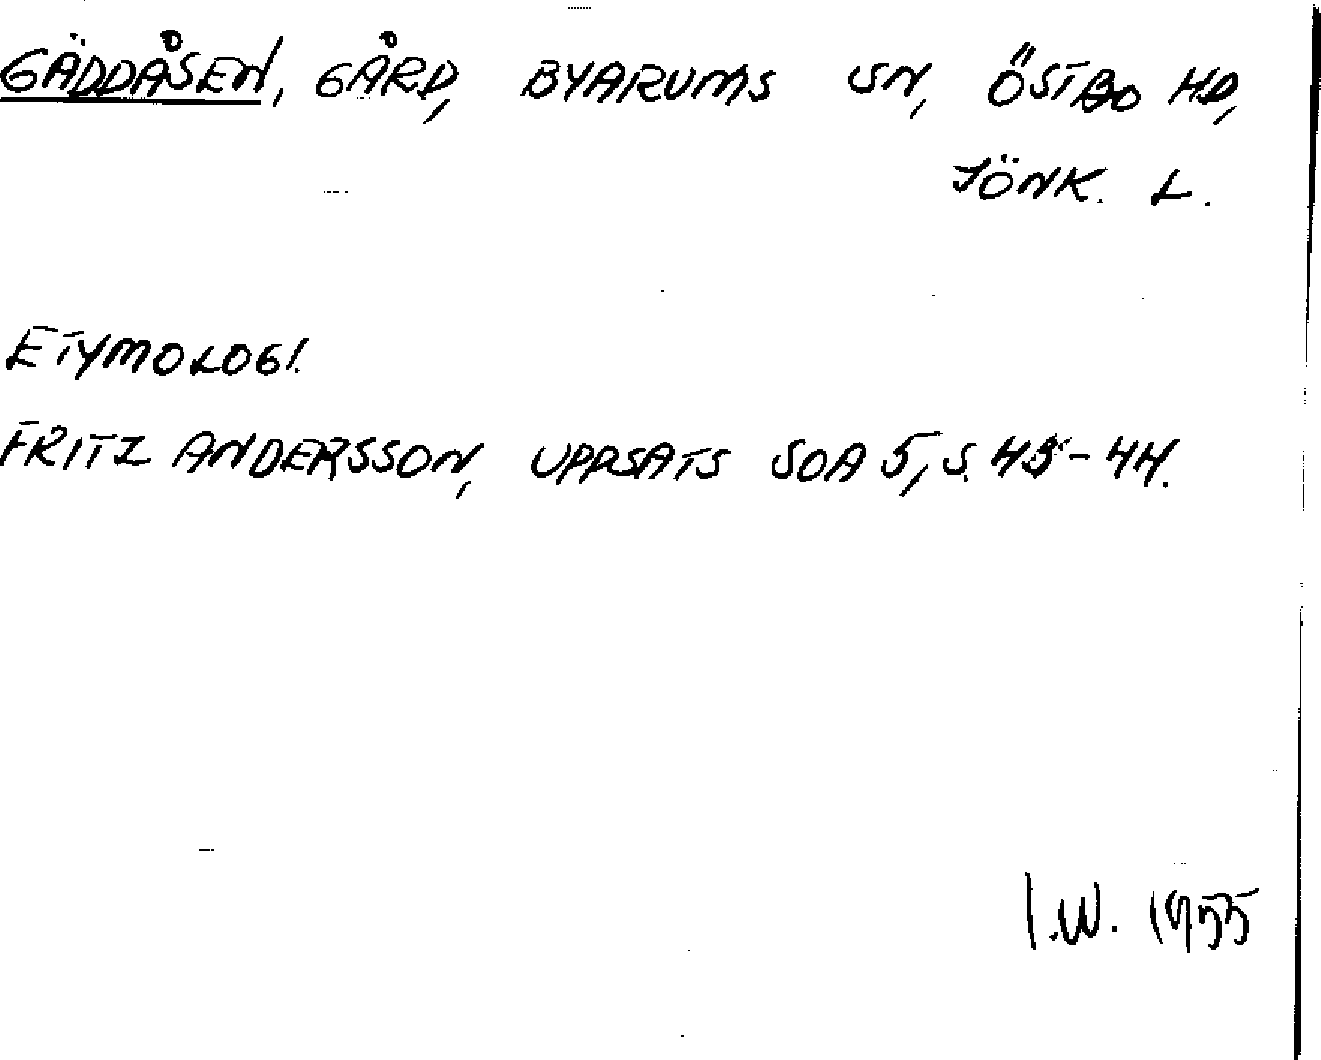 GÄDDÅSEN, GÅRD, BYARUMS SN, ÖSTBO HD,
JÖNK. L.
ETYMOLOGI.
FRITZ ANDERSSON, UPPSATS SOA 5, S. 43-44.
I.W. 1955